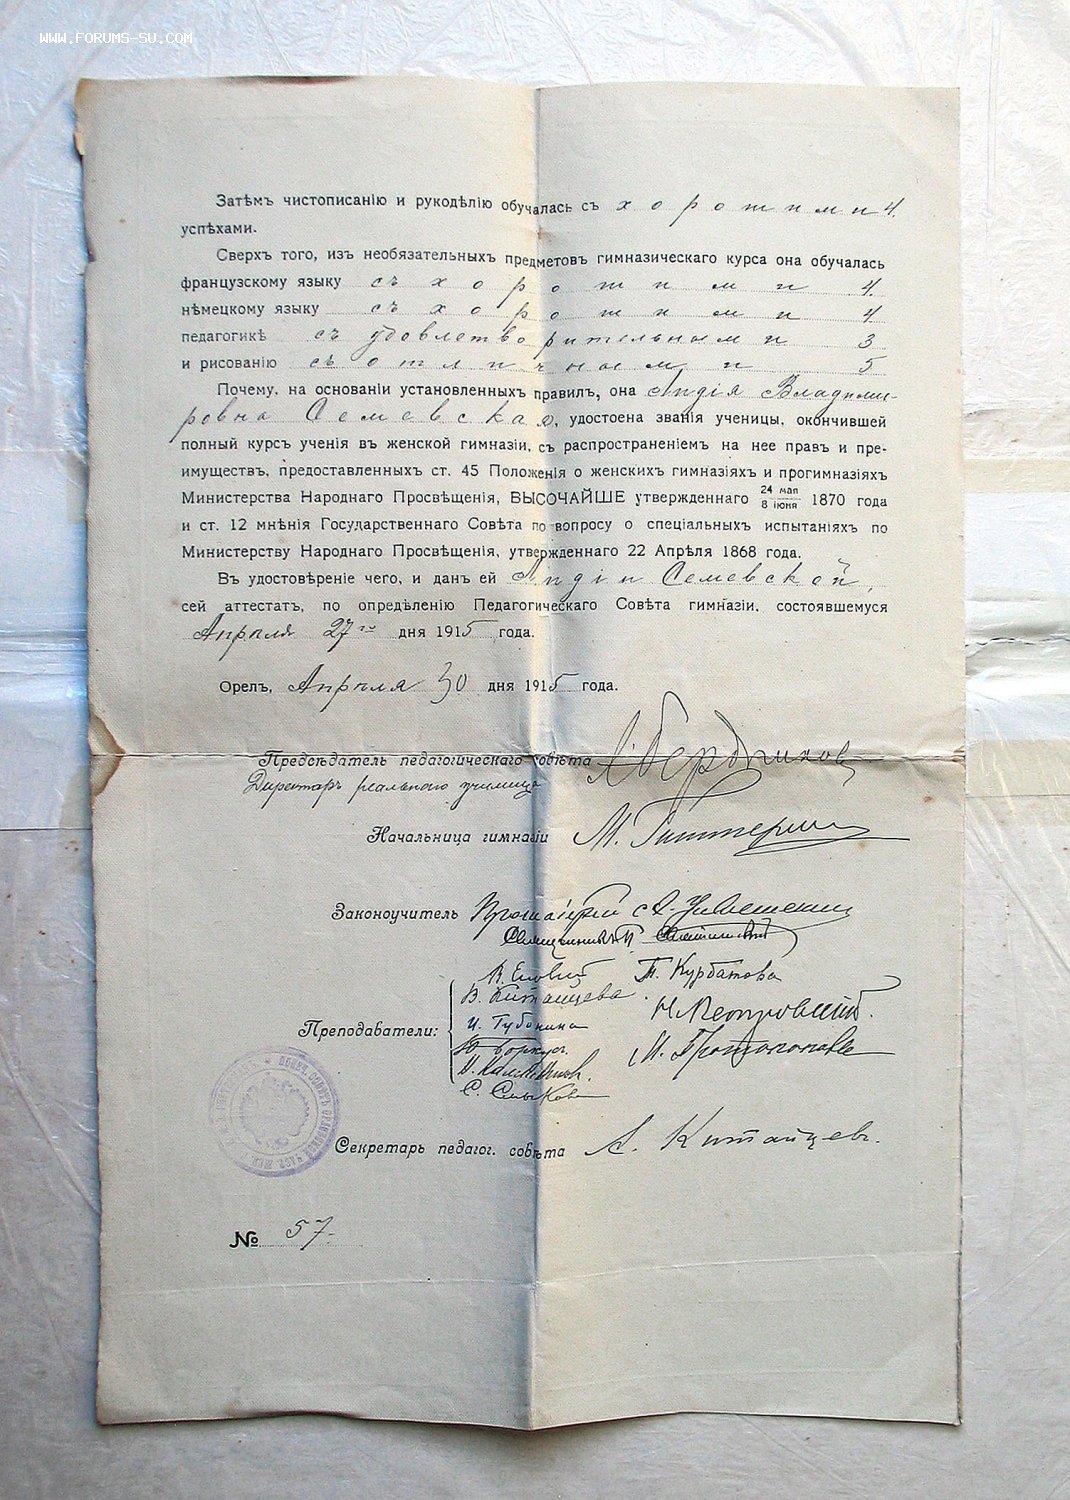 WWW.FORUMS-SU.COM
Затѣмъ чистописанію и рукодѣлію обучалась съ хорошими 4.
успѣхами.
Сверхъ того, изъ необязательныхъ предметовъ гимназическаго курса она обучалась
французскому языку съ хорошими 4.
нѣмецкому языку съ хорошими 4
педагогикѣ съ удовлетворительными 3
и рисованію съ отличными 5
Почему, на основаніи установленныхъ правилъ, она Лидія Владими-
ровна Семевская, удостоена званія ученицы, окончившей
полный курсъ ученія въ женской гимназіи, съ распространеніемъ на нее правъ и пре-
имуществъ, предоставленныхъ ст. 45 Положенія о женскихъ гимназіяхъ и прогимназіяхъ
Министерства Народнаго Просвѣщенія, ВЫСОЧАЙШЕ утвержденнаго 24 мая / 8 іюня 1870 года
и ст. 12 мнѣнія Государственнаго Совѣта по вопросу о спеціальныхъ испытаніяхъ по
Министерству Народнаго Просвѣщенія, утвержденнаго 22 Апрѣля 1868 года.
Въ удостовѣреніе чего, и данъ ей Лидіи Семевской,
сей аттестатъ, по опредѣленію Педагогическаго Совѣта гимназіи, состоявшемуся
Апрѣля 27го дня 1915 года.
Орелъ, Апрѣля 30 дня 1915 года.
Предсѣдатель педагогическаго совѣта Бердниковъ
Директоръ реальнаго училища
Начальница гимназіи М. Гиттерманъ
Законоучитель Протоіерей
Священникъ
Т. Курбатова
В. Китайцева Н. Петровскій.
Преподаватели: И. Губонина
М. Протопопова
С. Сныткова
Секретарь педагог. совѣта А. Китайцевъ.
№ 57.